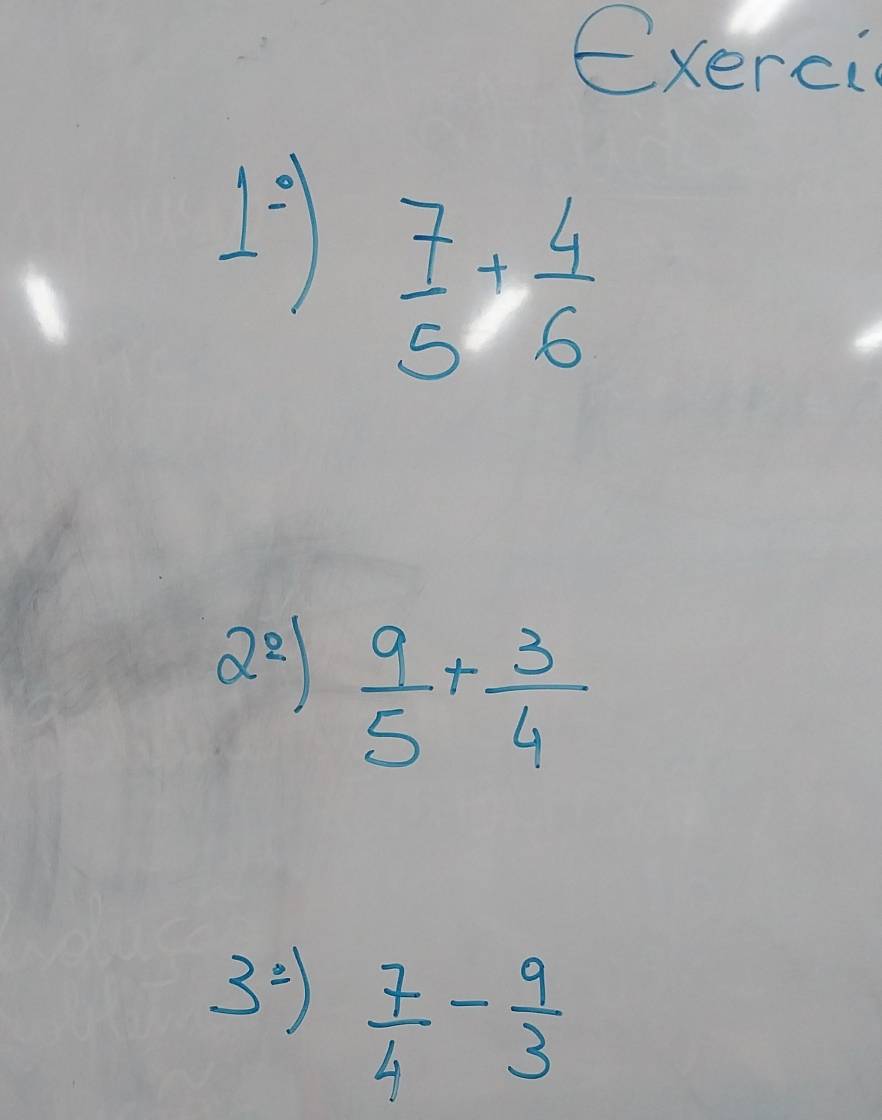 Exerci
1º) 7/5 + 4/6
2º) 9/5 + 3/4
3º) 7/4 - 9/3